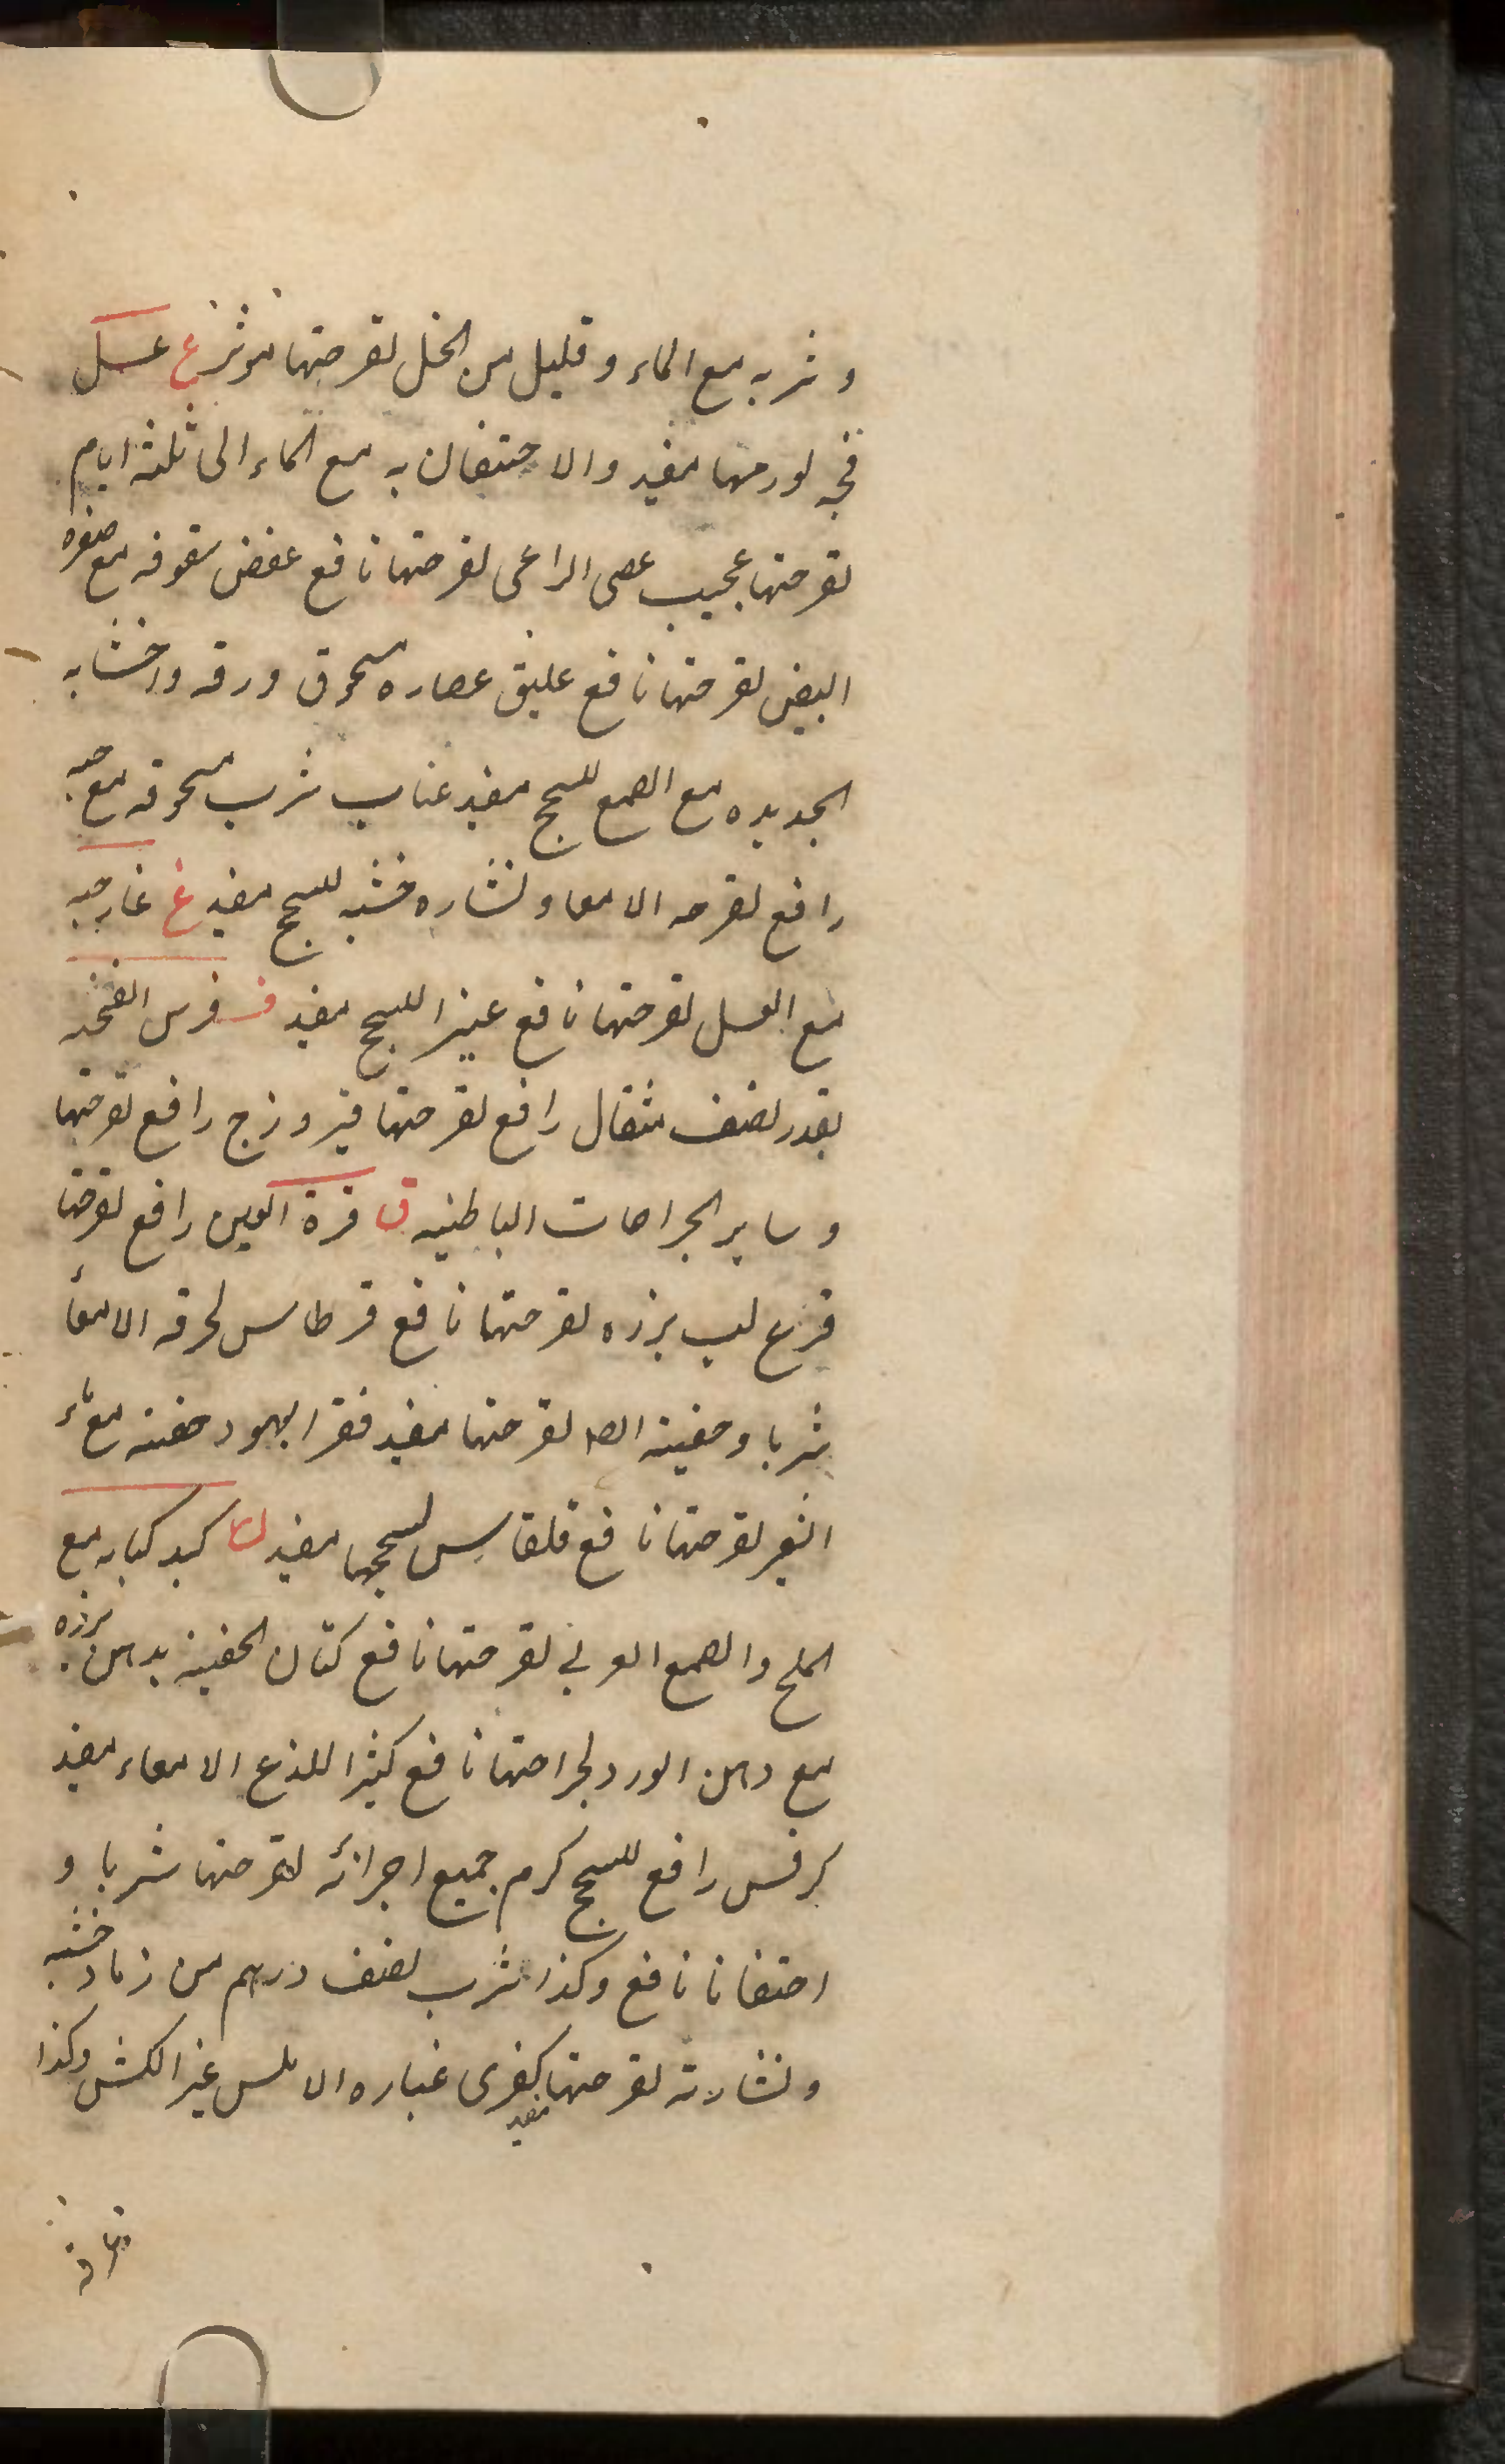 و شربه مع الماء و قليل من الخل لقرحتها موثر ع عسل
فجه لورمها مفيد والاحتقان به مع الماء الى ثلثه ايام
لقرحتها عجيب عصى الراعى لقرحتها نافع عفص سفوفه مع صفره
البيض لقرحتها نافع عليق عصاره مسحوق ورقه واخشابه
الجديده مع الصمغ للسحج مفيد عناب شرب مسحوقه مع حبه
رافع لقرحه الامعا و نشاره خشبه للسحج مفيد غ غار حبه
مع العسل لقرحتها نافع غيرا للسحج مفيد ف فرس
بقدر نصف مثقال رافع لقرحتها فيروزج رافع لقرحتها
و ساير الجراحات الباطنيه ق قرة العين رافع لقرحتها
قرع لب بزره لقرحتها نافع قرطاس لحرقه الامعاء
شربا و حقنية لقرحتها مفيد فقر اليهود حقنه مع ماء
لقرحتها نافع قلقاس لسحجها مفيد ك كبد كبابه مع
الملح و الصمغ العربي لقرحتها نافع كتان الحقنية بدهن بزره
مع دهن الورد لجراحتها نافع كثيرا للذع الامعاء مفيد
كرفس رافع للسحج كرم جميع اجزائه لقرحتها شربا و
احتقانا نافع وكذا شرب نصف درهم من رماد خشبه
و نشارته لقرحتها مفيد كفرى غباره الاملس غير وكذا